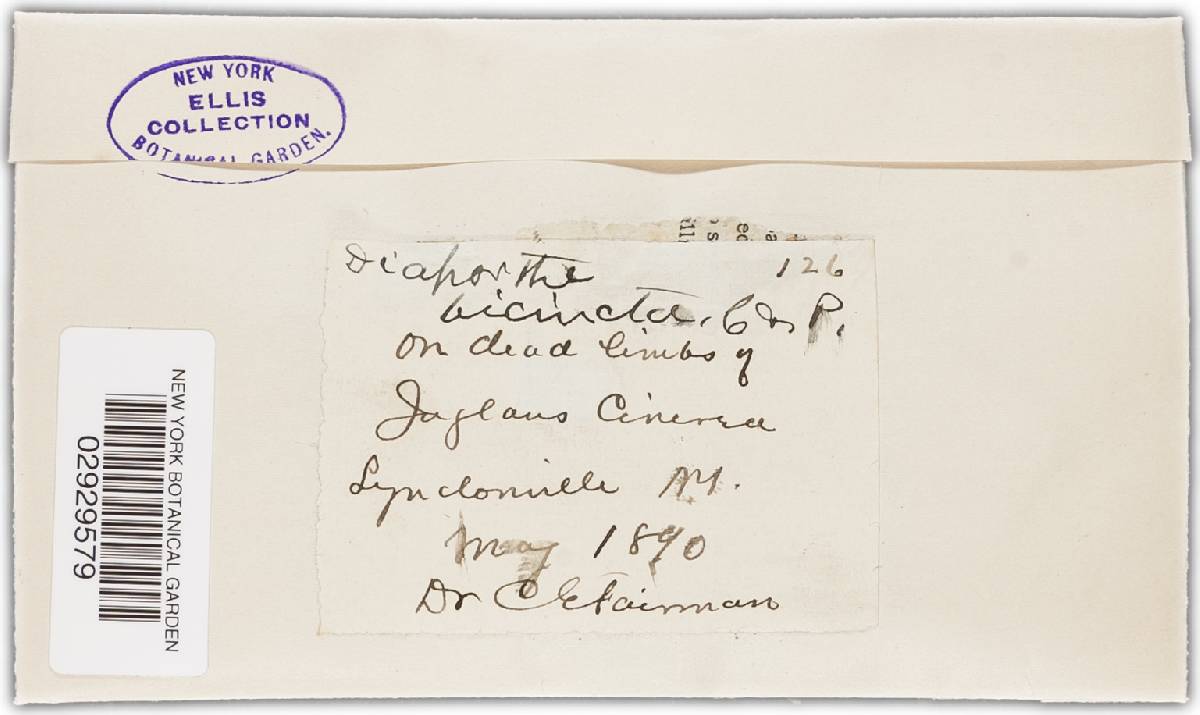 NEW YORK
ELLIS
COLLECTION
BOTANICAL GARDEN.
Diaporthe 126
bicincta, C & P.
on dead limbs of
Juglans Cinerea
Lyndonville NY.
May 1890
Dr C E Fairman
NEW YORK BOTANICAL GARDEN
02929579